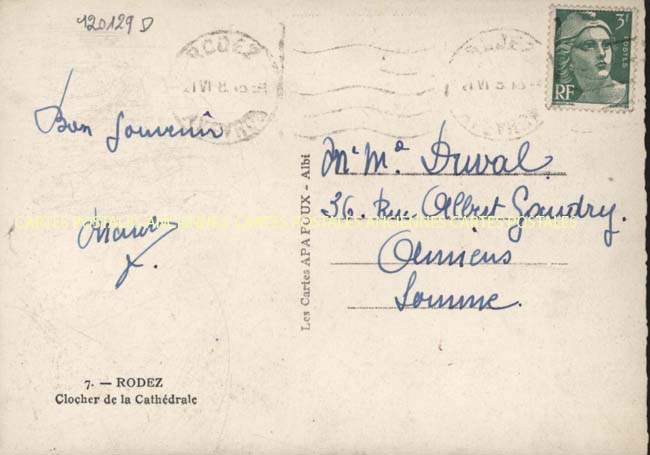 120129 D
RODEZ
AVEYRON
RODEZ
AVEYRON
3F
POSTES
RF
Bon Souvenir
Mr Me Duval
36. Rue Albert Gaudry.
Amiens
Somme.
CARTES POSTALES ANCIENNES CARTES POSTALES ANCIENNES CARTES POSTALES
Les Cartes APA POUX - Albi
7. — RODEZ
Clocher de la Cathédrale